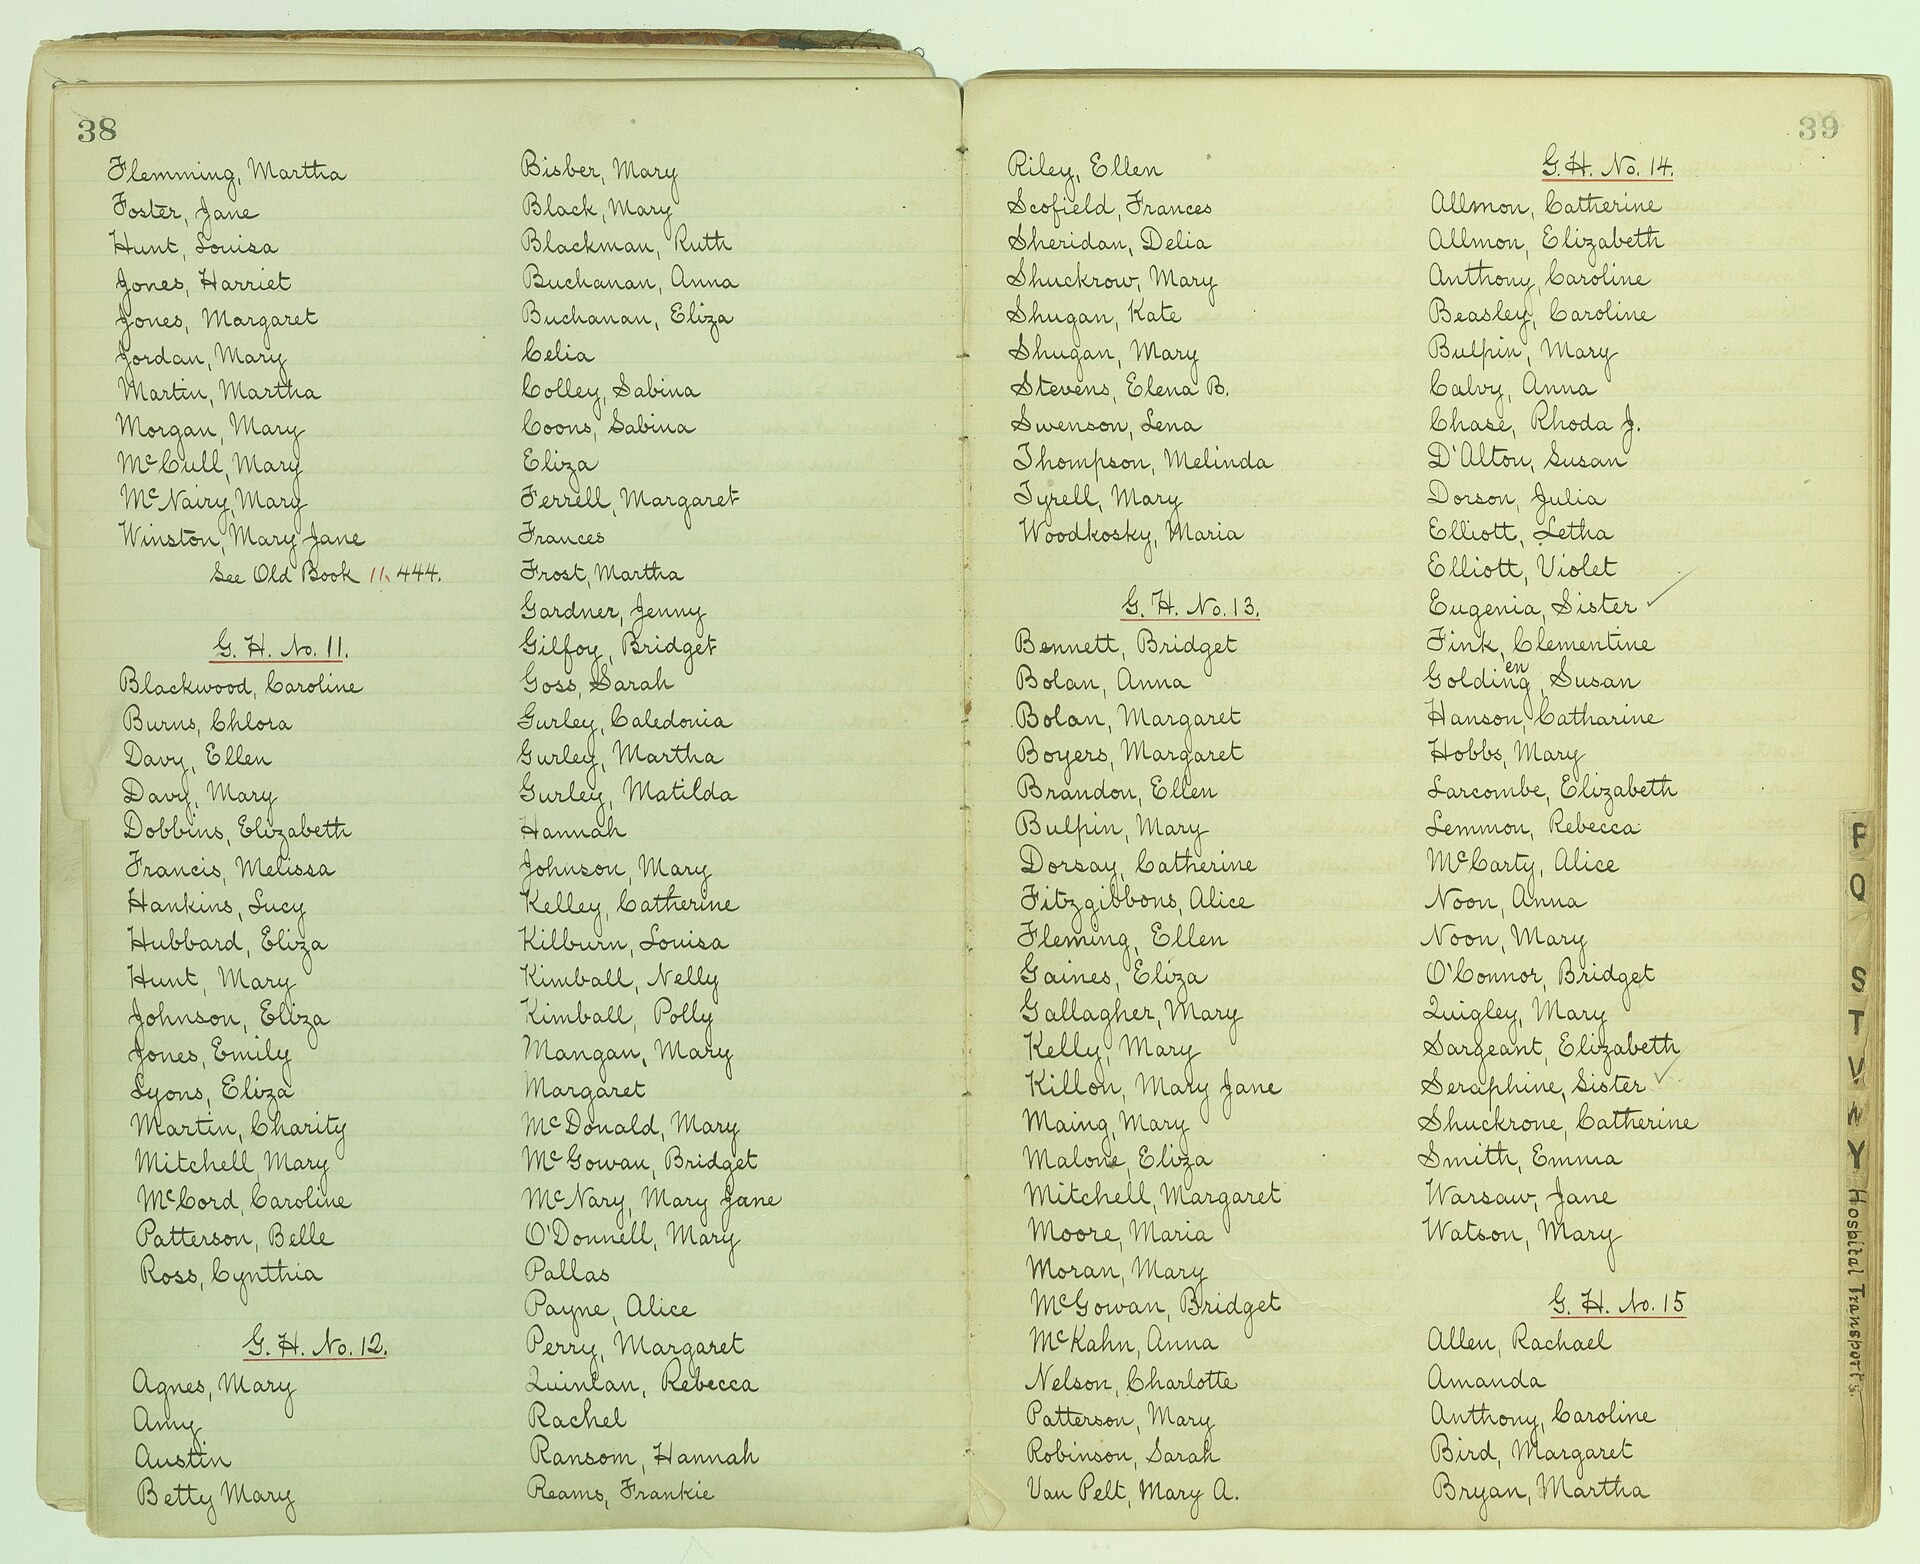 38
Flemming, Martha
Foster, Jane
Hunt, Louisa
Jones, Harriet
Jones, Margaret
Jordan, Mary
Martin, Martha
Morgan, Mary
McCull, Mary
McNairy, Mary
Winston, Mary Jane
See Old Book 11, 444.
G. H. No. 11.
Blackwood, Caroline
Burns, Chlora
Davy, Ellen
Davy, Mary
Dobbins, Elizabeth
Francis, Melissa
Hankins, Lucy
Hubbard, Eliza
Hunt, Mary
Johnson, Eliza
Jones, Emily
Lyons, Eliza
Martin, Charity
Mitchell, Mary
McCord, Caroline
Patterson, Belle
Ross, Cynthia
G. H. No. 12.
Agnes, Mary
Amy
Austin
Betty Mary
Bisber, Mary
Black, Mary
Blackman, Ruth
Buchanan, Anna
Buchanan, Eliza
Celia
Colley, Sabina
Coons, Sabina
Eliza
Ferrell, Margaret
Frances
Frost, Martha
Gardner, Jenny
Gilfoy, Bridget
Goss, Sarah
Gurley, Caledonia
Gurley, Martha
Gurley, Matilda
Hannah
Johnson, Mary
Kelley, Catherine
Kilburn, Louisa
Kimball, Nelly
Kimball, Polly
Mangan, Mary
Margaret
McDonald, Mary
McGowan, Bridget
McNary, Mary Jane
O'Donnell, Mary
Pallas
Payne, Alice
Perry, Margaret
Quinlan, Rebecca
Rachel
Ransom, Hannah
Reams, Frankie
39
Riley, Ellen
Scofield, Frances
Sheridan, Delia
Shuckrow, Mary
Shugan, Kate
Shugan, Mary
Stevens, Elena B.
Swenson, Lena
Thompson, Melinda
Tyrell, Mary
Woodkosky, Maria
G. H. No. 13.
Bennett, Bridget
Bolan, Anna
Bolan, Margaret
Boyers, Margaret
Brandon, Ellen
Bulpin, Mary
Dorsay, Catherine
Fitzgibbons, Alice
Fleming, Ellen
Gaines, Eliza
Gallagher, Mary
Kelly, Mary
Killon, Mary Jane
Maing, Mary
Malone, Eliza
Mitchell, Margaret
Moore, Maria
Moran, Mary
McGowan, Bridget
McKahn, Anna
Nelson, Charlotte
Patterson, Mary
Robinson, Sarah
Van Pelt, Mary A.
G. H. No. 14.
Allmon, Catherine
Allmon, Elizabeth
Anthony, Caroline
Beasley, Caroline
Bulpin, Mary
Calvy, Anna
Chase, Rhoda J.
D'Alton, Susan
Dorson, Julia
Elliott, Letha
Elliott, Violet
Eugenia, Sister ✓
Fink, Clementine
en
Golding, Susan
Hanson, Catharine
Hobbs, Mary
Larcombe, Elizabeth
Lemmon, Rebecca
McCarty, Alice
Noon, Anna
Noon, Mary
O'Connor, Bridget
Quigley, Mary
Sargeant, Elizabeth
Seraphine, Sister ✓
Shuckrone, Catherine
Smith, Emma
Warsaw, Jane
Watson, Mary
G. H. No. 15
Allen, Rachael
Amanda
Anthony, Caroline
Bird, Margaret
Bryan, Martha
Hospital Transports